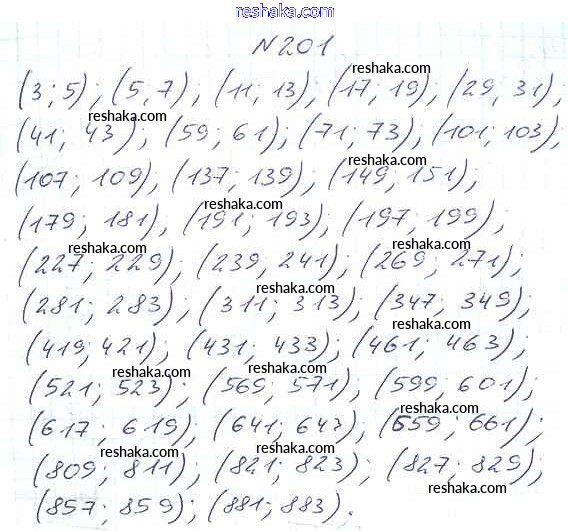 reshaka.com
N201
reshaka.com
(3; 5); (5, 7); (11; 13); (17; 19); (29; 31);
reshaka.com
(41; 43); (59; 61); (71; 73); (101; 103);
reshaka.com reshaka.com
(107; 109); (137; 139); (149; 151);
reshaka.com
(179; 181), (191; 193); (197; 199);
reshaka.com reshaka.com
(227; 229); (239; 241); (269; 271);
reshaka.com
(281; 283); (311; 313); (347; 349);
reshaka.com reshaka.com
(419; 421); (431; 433); (461; 463);
reshaka.com
(521; 523); (569; 571); (599; 601);
reshaka.com reshaka.com
(617; 619); (641; 643); (659; 661);
reshaka.com
(809; 811); (821; 823); (827; 829);
reshaka.com reshaka.com
(857; 859); (881; 883).